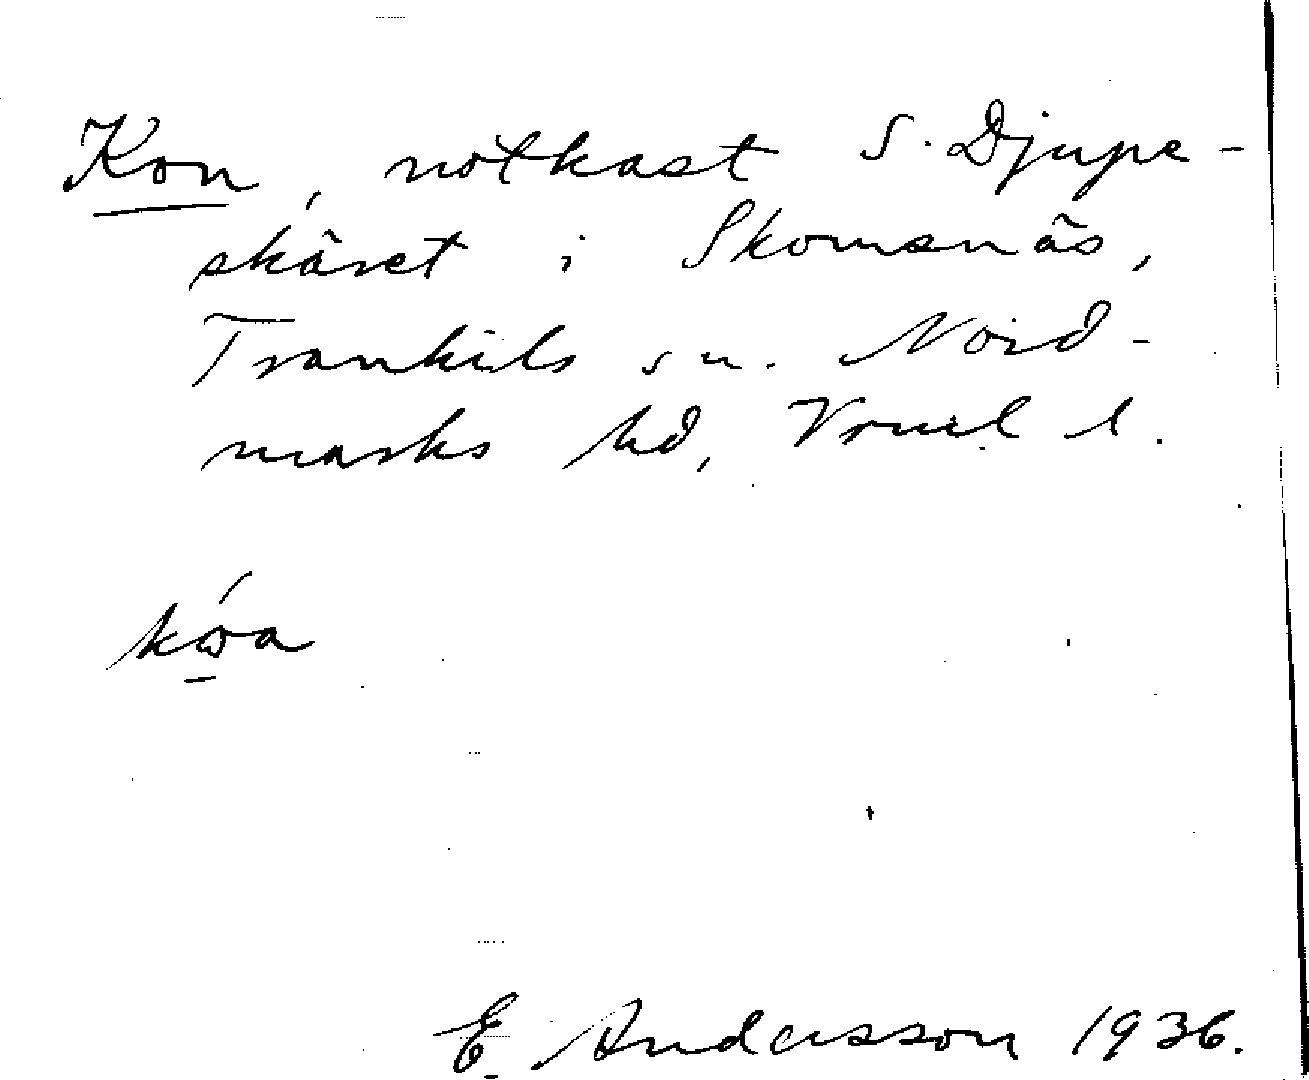 Kon, notkast S. Djupe-
skäret i Skomsnäs,
Trankils sn. Nord-
marks hd, Vrml l.
kó̱a
E. Andersson 1936.